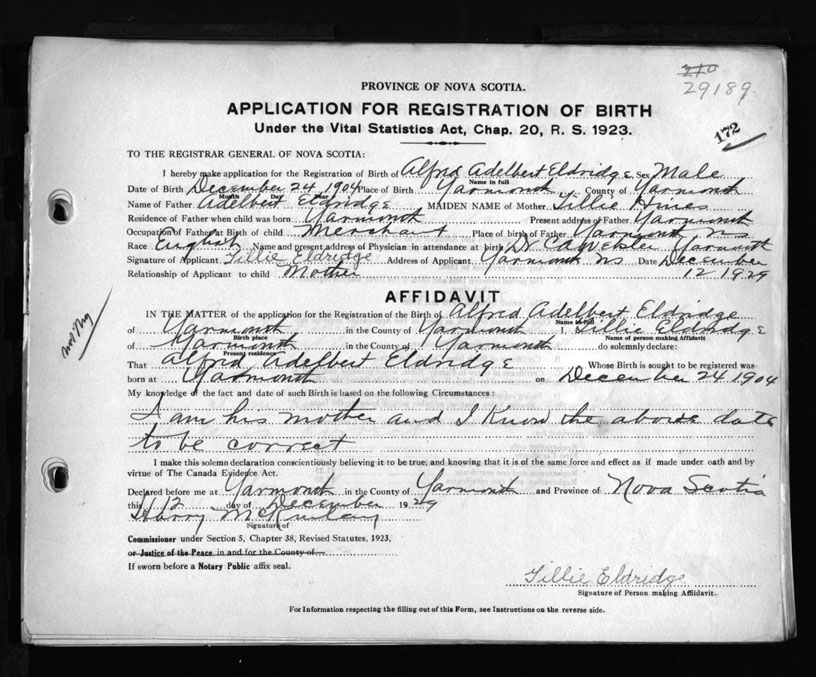 210
29189
PROVINCE OF NOVA SCOTIA.
APPLICATION FOR REGISTRATION OF BIRTH
Under the Vital Statistics Act, Chap. 20, R. S. 1923.
172
TO THE REGISTRAR GENERAL OF NOVA SCOTIA:
I hereby make application for the Registration of Birth of Alfred Adelbert Eldridge Sex Male
Name in full
Date of Birth December 24, 1904 Place of Birth Yarmouth County of Yarmouth
Month Day Year
Name of Father Adelbert Eldridge MAIDEN NAME of Mother Tillie Hines
Residence of Father when child was born Yarmouth Present address of Father Yarmouth
Occupation of Father at Birth of child Merchant Place of birth of Father Yarmouth NS
Race English Name and present address of Physician in attendance at birth Dr CA Webster Yarmouth
Signature of Applicant Tillie Eldridge Address of Applicant Yarmouth NS Date December
Relationship of Applicant to child Mother 12 1929
AFFIDAVIT
IN THE MATTER of the application for the Registration of the Birth of Alfred Adelbert Eldridge
Name in full
of Yarmouth in the County of Yarmouth I, Tillie Eldridge
Birth place Name of person making Affidavit
of Yarmouth in the County of Yarmouth do solemnly declare:
Present residence
That Alfred Adelbert Eldridge Whose Birth is sought to be registered was
born at Yarmouth on December 24 1904
My knowledge of the fact and date of such Birth is based on the following Circumstances:
I am his mother and I Know the above date
to be correct
I make this solemn declaration conscientiously believing it to be true, and knowing that it is of the same force and effect as if made under oath and by
virtue of The Canada Evidence Act.
Declared before me at Yarmouth in the County of Yarmouth and Province of Nova Scotia
this 12 day of December 1929
Harry McKinlay
Signature of
Commissioner under Section 5, Chapter 38, Revised Statutes, 1923,
or Justice of the Peace in and for the County of
If sworn before a Notary Public affix seal.
Tillie Eldridge
Signature of Person making Affidavit.
For Information respecting the filling out of this Form, see Instructions on the reverse side.